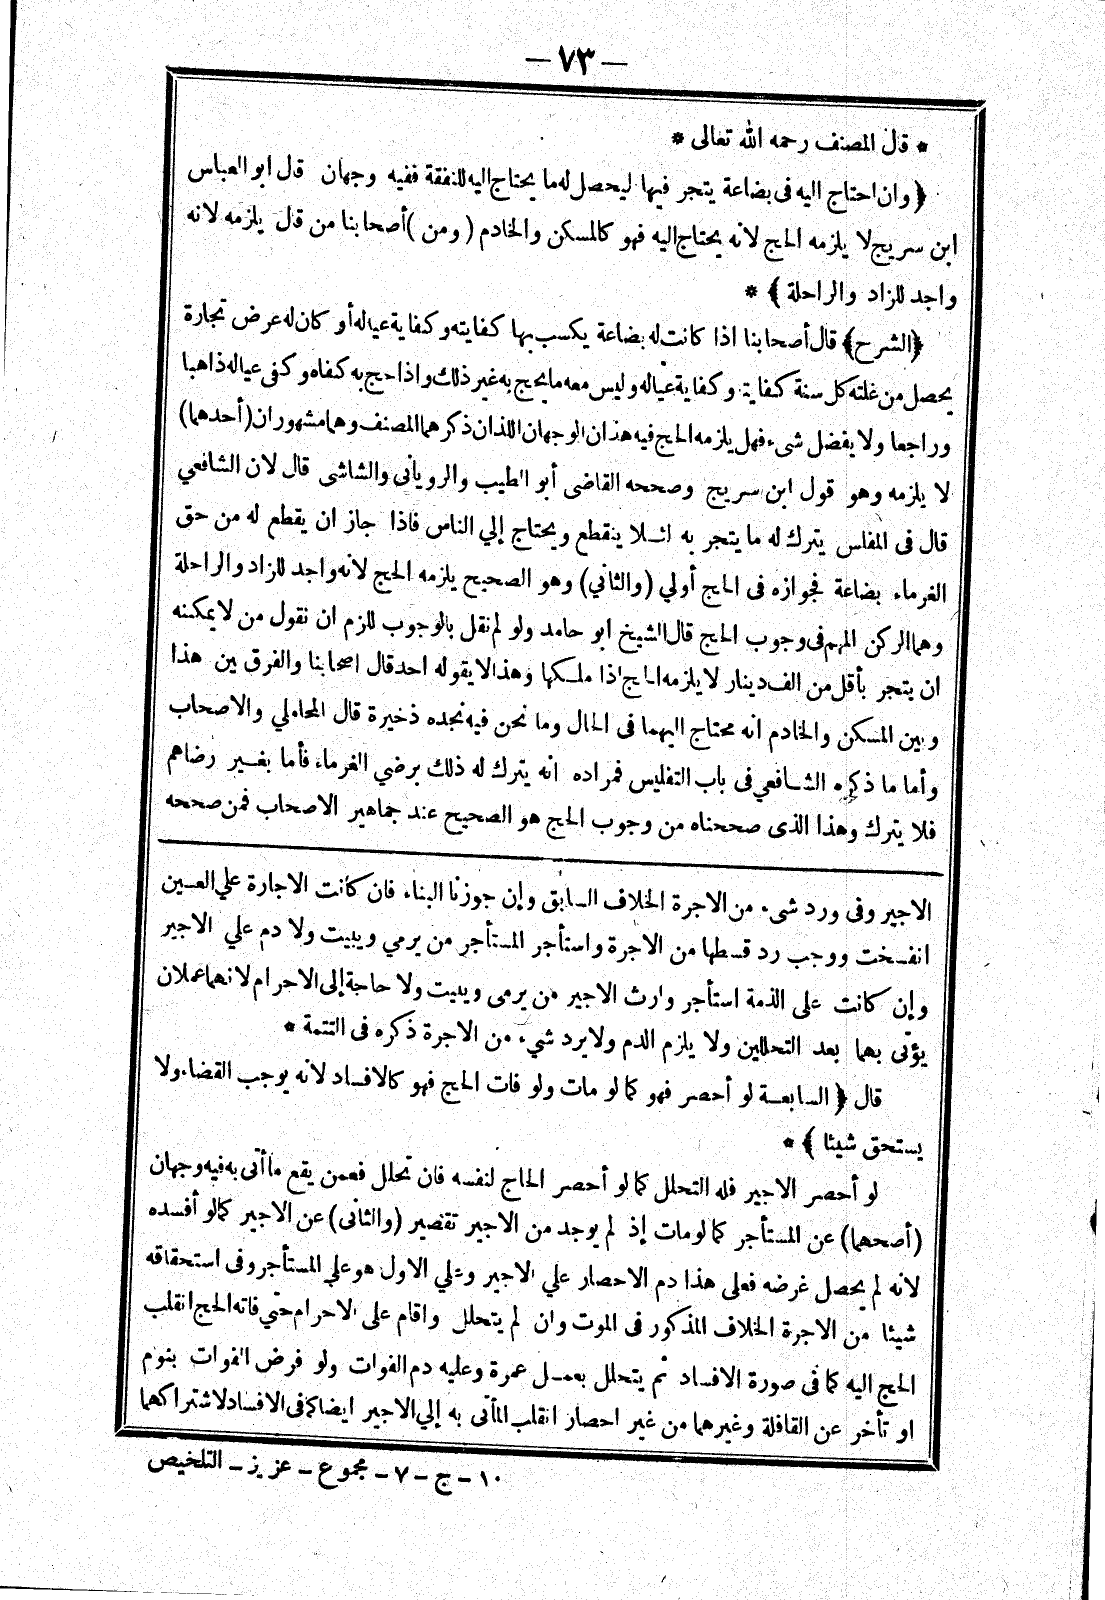 — ٧٣ —
* قال المصنف رحمه الله تعالى *
﴿ وان احتاج اليه فى بضاعة يتجر فيها ليحصل له ما يحتاج اليه للنفقة ففيه وجهان قال ابو العباس
ابن سريج لا يلزمه الحج لانه يحتاج اليه فهو كالمسكن والخادم ( ومن ) أصحابنا من قال يلزمه لانه
واجد للزاد والراحلة ﴾ *
﴿الشرح﴾ قال أصحابنا اذا كانت له بضاعة يكسب بها كفايته وكفاية عياله أو كان له عرض تجارة
يحصل من غلته كل سنة كفايته وكفاية عياله وليس معه ما يحج به غير ذلك واذا حج به كفاه وكفى عياله ذاهبا
وراجعا ولا يفضل شىء فهل يلزمه الحج فيه هذان الوجهان اللذان ذكرهما المصنف وهما مشهوران (أحدهما)
لا يلزمه وهو قول ابن سريج وصححه القاضى أبو الطيب والرويانى والشاشى قال لان الشافعي
قال فى المفلس يترك له ما يتجر به لئلا ينقطع ويحتاج إلي الناس فاذا جاز ان يقطع له من حق
الغرماء بضاعة فجوازه فى الحج أولي (والثاني) وهو الصحيح يلزمه الحج لانه واجد للزاد والراحلة
وهما الركن المهم فى وجوب الحج قال الشيخ ابو حامد ولو لم نقل بالوجوب للزم ان نقول من لا يمكنه
ان يتجر بأقل من الف دينار لا يلزمه الحج اذا ملكها وهذا لا يقوله احد قال اصحابنا والفرق بين هذا
وبين المسكن والخادم انه محتاج اليهما فى الحال وما نحن فيه نجده ذخيرة قال المحاملي والاصحاب
وأما ما ذكره الشافعي فى باب التفليس فمراده انه يترك له ذلك برضي الغرماء فأما بغير رضاهم
فلا يترك وهذا الذى صححناه من وجوب الحج هو الصحيح عند جماهير الاصحاب فمن صححه
الاجير وفى ورد شىء من الاجرة الخلاف السابق وإن جوزنا البناء فان كانت الاجارة علي العين
انفسخت ووجب رد قسطها من الاجرة واستأجر المستأجر من يرمي ويبيت ولا دم علي الاجير
وإن كانت على الذمة استأجر وارث الاجير من يرمى ويبيت ولا حاجة إلى الاحرام لانهما عملان
يؤتى بهما بعد التحللين ولا يلزم الدم ولا يرد شيء من الاجرة ذكره فى التتمة *
قال ﴿ السابعة لو أحصر فهو كما لو مات ولو فات الحج فهو كالافساد لانه يوجب القضاء ولا
يستحق شيئا ﴾ *
لو أحصر الاجير فله التحلل كما لو أحصر الحاج لنفسه فان تحلل فعمن يقع ما أتى به فيه وجهان
(أصحهما) عن المستأجر كما لو مات إذ لم يوجد من الاجير تقصير (والثانى) عن الاجير كما لو أفسده
لانه لم يحصل غرضه فعلى هذا دم الاحصار علي الاجير وعلي الاول هو علي المستأجر وفى استحقاقه
شيئا من الاجرة الخلاف المذكور فى الموت وان لم يتحلل واقام على الاحرام حتي فاته الحج انقلب
الحج اليه كما فى صورة الافساد ثم يتحلل بعمل عمرة وعليه دم الفوات ولو فرض الفوات بنوم
او تأخر عن القافلة وغيرهما من غير احصار انقلب المأتى به إلي الاجير ايضا كما فى الافساد لاشتراكهما
١٠ – ج – ٧ – مجموع – عزيز – التلخيص